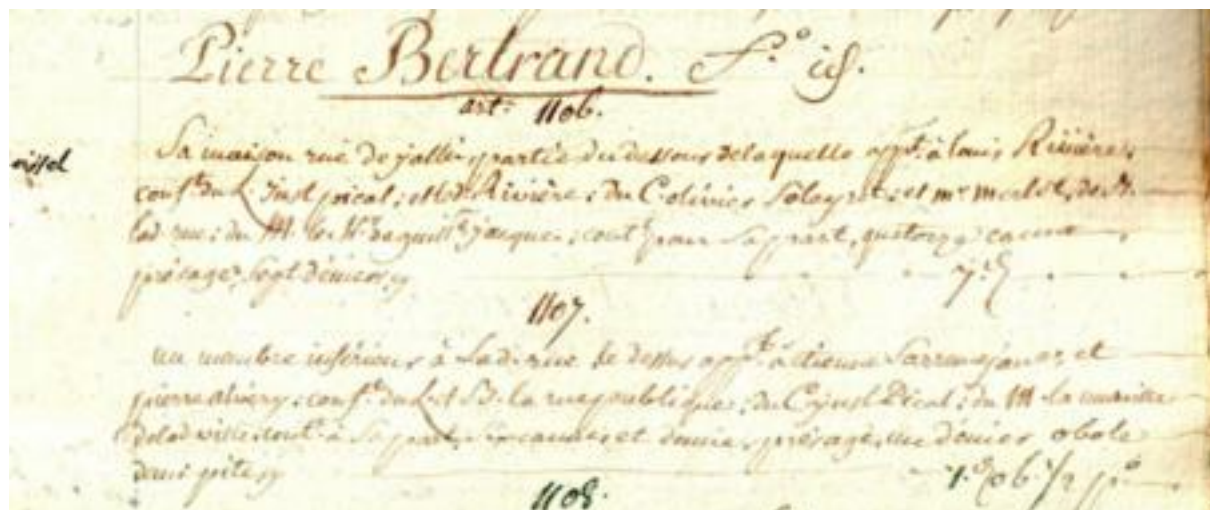 Pierre Bertrand. f.o id.
art. 1106.
Sa maison rue de jalles partie du dessous de laquelle appt. à louis Rivière,
conft. du L. Just pical; et lod. Rivière; du C. olivier Soleyrol; et mr. merlet, de
lad. rue; du M. le jacques; contt. pour sa part, quatorze canne
présage, sept deniers,, 7.d
1107.
un membre inférieur à Lad. rue le dessus appt. à étienne et
pierre ; conft. du L. et Sd. la rue publique; du C. Just Pical; du M. la muraille
de lad. ville; contt. à sa part cannes et demie, présage, un denier obole
demi pite,, 1.d ob. 1/2 p.o
1108.